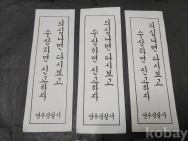 의심나면 다시보고
수상하면 신고하자
영주경찰서
의심나면 다시보고
수상하면 신고하자
영주경찰서
의심나면 다시보고
수상하면 신고하자
영주경찰서
kobay